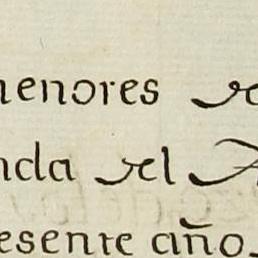 menores de
nda del A
esente año.